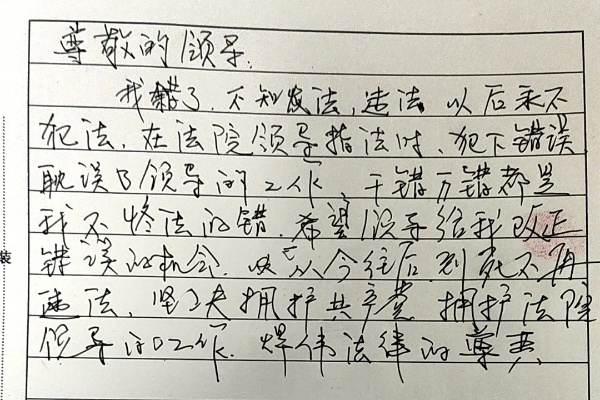 尊敬的领导:
我错了.不知发法,违法 以后永不
犯法.在法院领导指法时.犯下错误
耽误了领导的工作、千错万错都是
我不修法的错.希望领导给我改正
错误的机会.从今往后到死不再
违法.坚决拥护共产党 拥护法院
领导的工作.焊伟法律的尊典
装